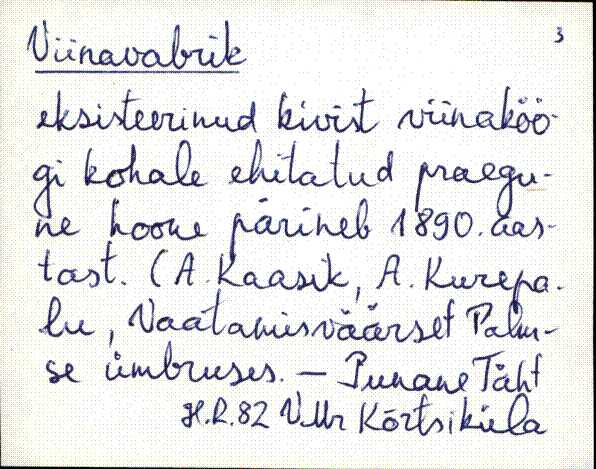 3
Viinavabrik
eksisteerinud kivist viinaköö-
gi kohale ehitatud praegu-
ne hoone pärineb 1890. aas-
tast. (A. Kaasik, A. Kurepa-
lu, Vaatamisväärset Palm-
se ümbruses. – Punane Täht
H.R. 82 VMr Kõrtsiküla